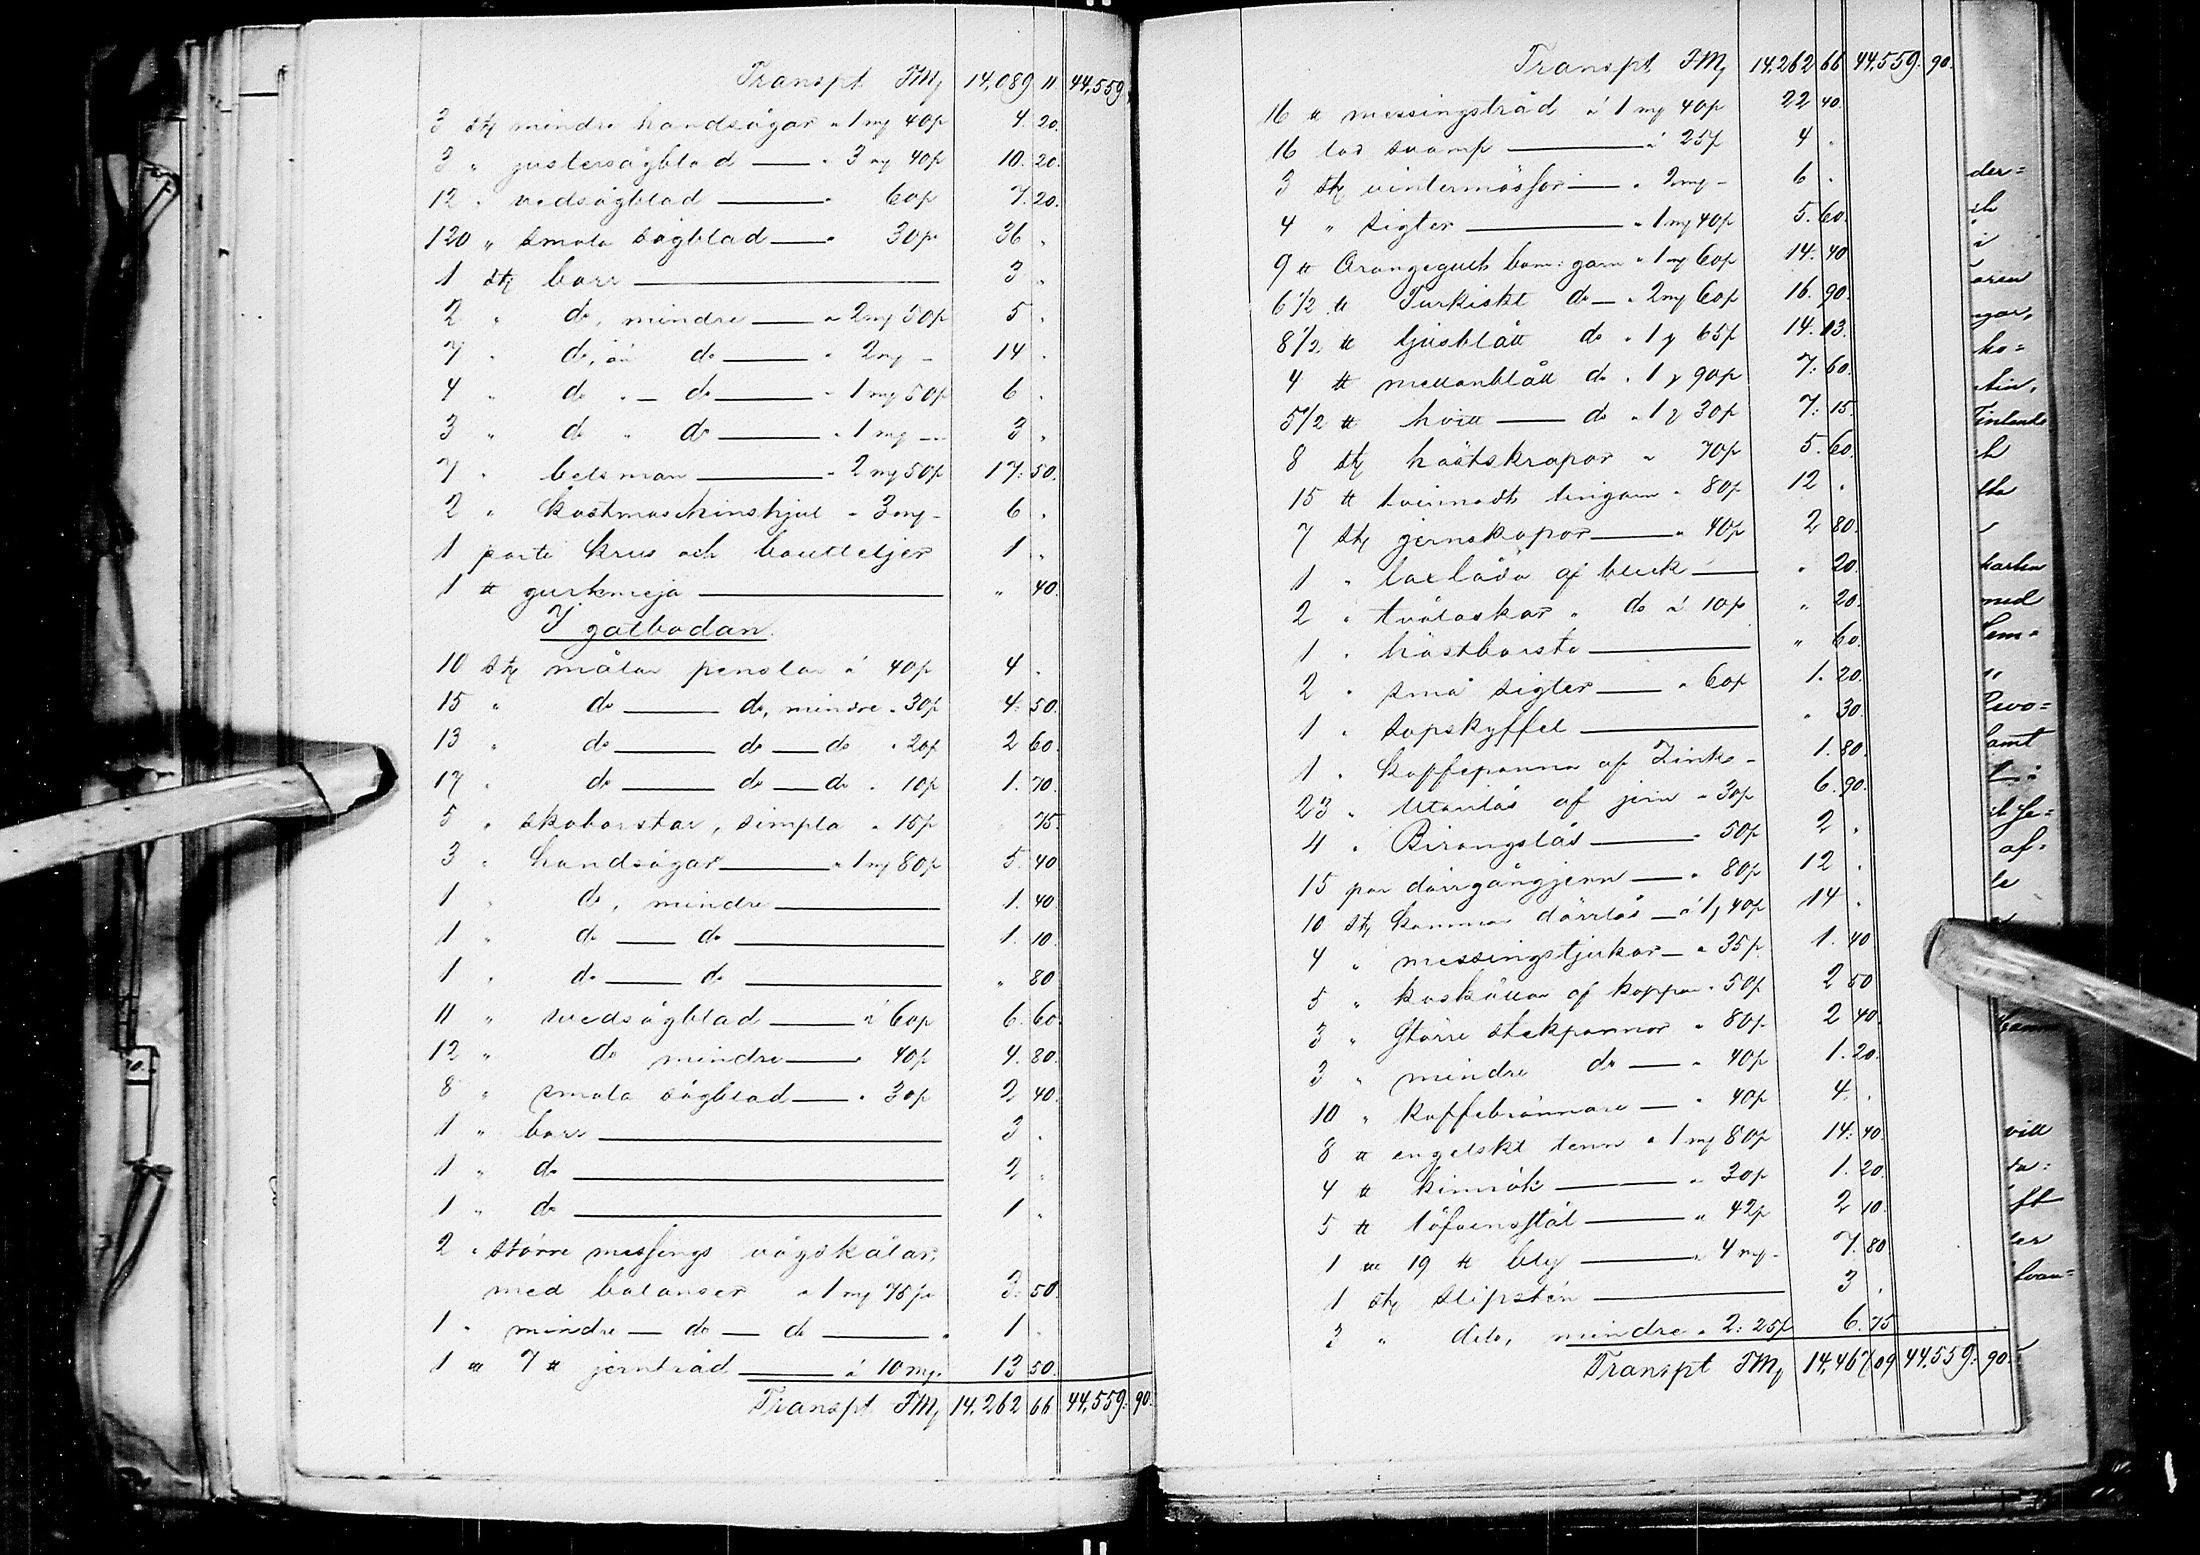 Transpt FMg 14,089 11 44,559
3 stg mindre handsågar a 1 mg 40p 4. 20.
3 " justersågblad — " 3 mg 40p 10. 20.
12 " vedsågblad — " 60p 7. 20.
120 " smala sågblad — " 30p 36 "
1 stg borr — 3 "
2 " do, mindre — a 2mg 50p 5 "
7 " do, än do — " 2mg - 14 "
4 " do " - do — " 1 mg 50p 6 "
3 " do " do — " 1 mg — 3 "
7 " betsman — " 2 mg 50p 17. 50.
2 " kastmaschinshjul " 3 mg - 6 "
1 parti krus och bouteljer 1 "
1 ℔ gurkmeja — " 40.
I gatbodan.
10 stg målar penslar á 40p 4 "
15 " do — do, mindre " 30p 4. 50.
13 " do — do — do " 20p 2 60.
17 " do — do — do " 10p 1. 70.
5 " skoborstar, simpla " 15p 75.
3 " handsågar — " 1 mg 80p 5. 40
1 " do, mindre — 1. 40.
1 " do — do — 1. 10.
1 " do — do — " 80
11 " vedsågblad — á 60p 6. 60.
12 " do mindre — " 40p 4. 80.
8 " smala sågblad — " 30p 2 40.
1 " borr — 3 "
1 " do — 2 "
1 " do — 1 "
2 " större messings vågskålar,
med balanser a 1 mg 75p 3. 50.
1 " mindre — do — do — 1 "
1 7 ℔ jerntråd — á 10 mg. 13 50.
Transpt FMg 14,262 66 44,559. 90.
Transpt FMg 14,262 66 44,559. 90.
16 ℔ messingstråd á 1 mg 40p 22 40.
16 lod svamp — á 25p 4 "
3 stg vintermössor — " 2mg - 6 "
4 " sigter — " 1 mg 40p 5. 60.
9 ℔ Orangegult bom: garn " 1 mg 60p 14. 40
6 1/2 ℔ Turkiskt do — " 2mg 60p 16. 90.
8 1/2 ℔ ljusblått do " 1 g 65p 14. 03.
4 ℔ mellanblått do " 1 g 90p 7: 60.
5 1/2 ℔ hvitt — do " 1 g 30p 7: 15.
8 stg hästskrapor " 70p 5. 60.
15 ℔ tvinnadt lingarn " 80p 12 "
7 stg jernskopor — " 40p 2 80.
1 " laxlåda af bleck — " 20.
2 " tvålaskar " do á 10p " 20.
1 " hästborste — " 60.
2 " små sigter — " 60p 1. 20.
1 " sopskyffel — " 30.
1 " kaffepanna af Zink - 1. 80.
23 " Utanlås af jern " 30p 6. 90.
4 " Birangslås — " 50p 2 "
15 par dörrgångjern — " 80p 12 "
10 stg kammar dörrlås — á 1, 40p 14 "
4 " messingstjukar — " 35p 1. 40
5 " af koppar " 50p 2 50
3 " större stekpannor " 80p 2 40.
3 " mindre do — " 40p 1. 20.
10 " kaffebrännare — " 40p 4. "
8 ℔ engelskt tenn a 1 mg 80p 14: 40.
4 ℔ kimrök — " 30p 1. 20.
5 ℔ löfvenstål — " 42p 2 10.
1 19 ℔ bly — " 4 mg - 7. 80.
1 stg slipsten — 3 "
3 " dito, mindre " 2: 25p 6. 75
Transpt FMg 14,467 09 44,559: 90.
der=
i
oren
ngar,
ko=
Finlands
med
samt
af
le
vill
ter